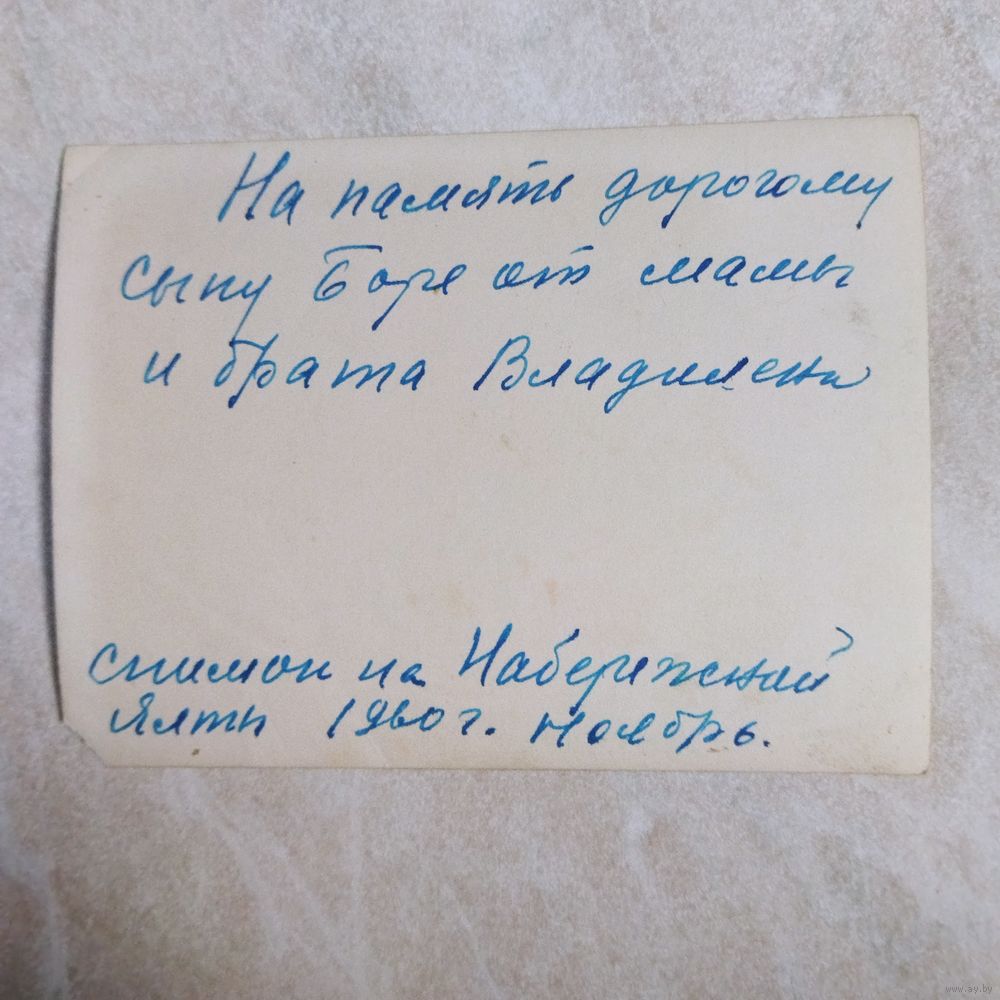 На память дорогому
сыну Боре от мамы
и брата Владилена
снимок на Набережной
Ялты 1960 г. ноябрь.
www.ay.by